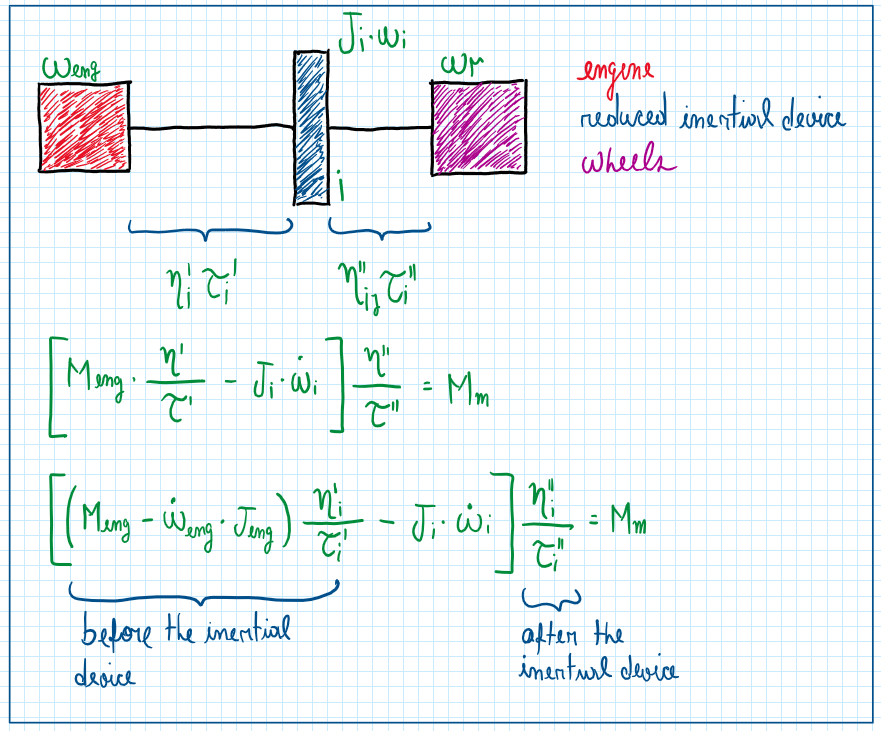 J_i · ω_i
ω_eng
ω_r
engine
reduced inertial device
wheels
i
η_i' τ_i'
η_ij'' τ_i''
[M_eng · η'/τ' - J_i · ω̇_i] η''/τ'' = M_m
[(M_eng - ω̇_eng · J_eng) η_i'/τ_i' - J_i · ω̇_i] η_i''/τ_i'' = M_m
before the inertial
device
after the
inertial device